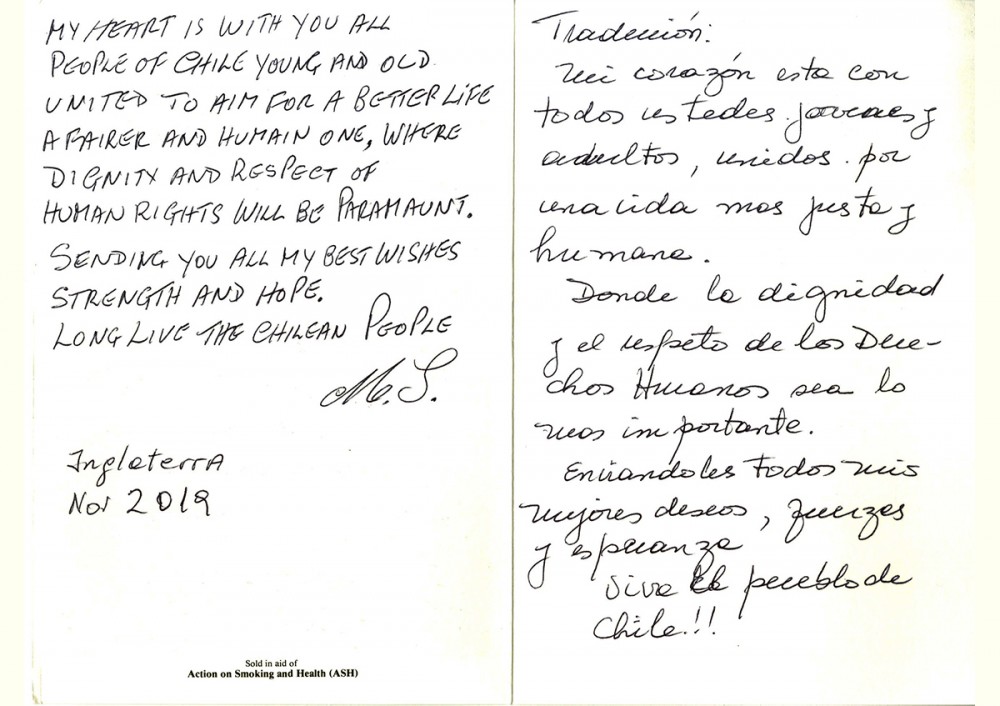 MY HEART IS WITH YOU ALL
PEOPLE OF CHILE YOUNG AND OLD
UNITED TO AIM FOR A BETTER LIFE
A FAIRER AND HUMAIN ONE, WHERE
DIGNITY AND RESPECT OF
HUMAN RIGHTS WILL BE PARAMAUNT.
SENDING YOU ALL MY BEST WISHES
STRENGTH AND HOPE.
LONG LIVE THE CHILEAN PEOPLE
M.S.
InglaterrA
Nov 2019
Sold in aid of
Action on Smoking and Health (ASH)
Traducción:
Mi corazón esta con
todos ustedes jovenes y
adultos, unidos por
una vida mas justa y
humana.
Donde la dignidad
y el respeto de los Dere-
chos Humanos sea lo
mas importante.
Enviandoles todos mis
mejores deseos, fuerzas
y esperanza
Viva el pueblo de
Chile!!